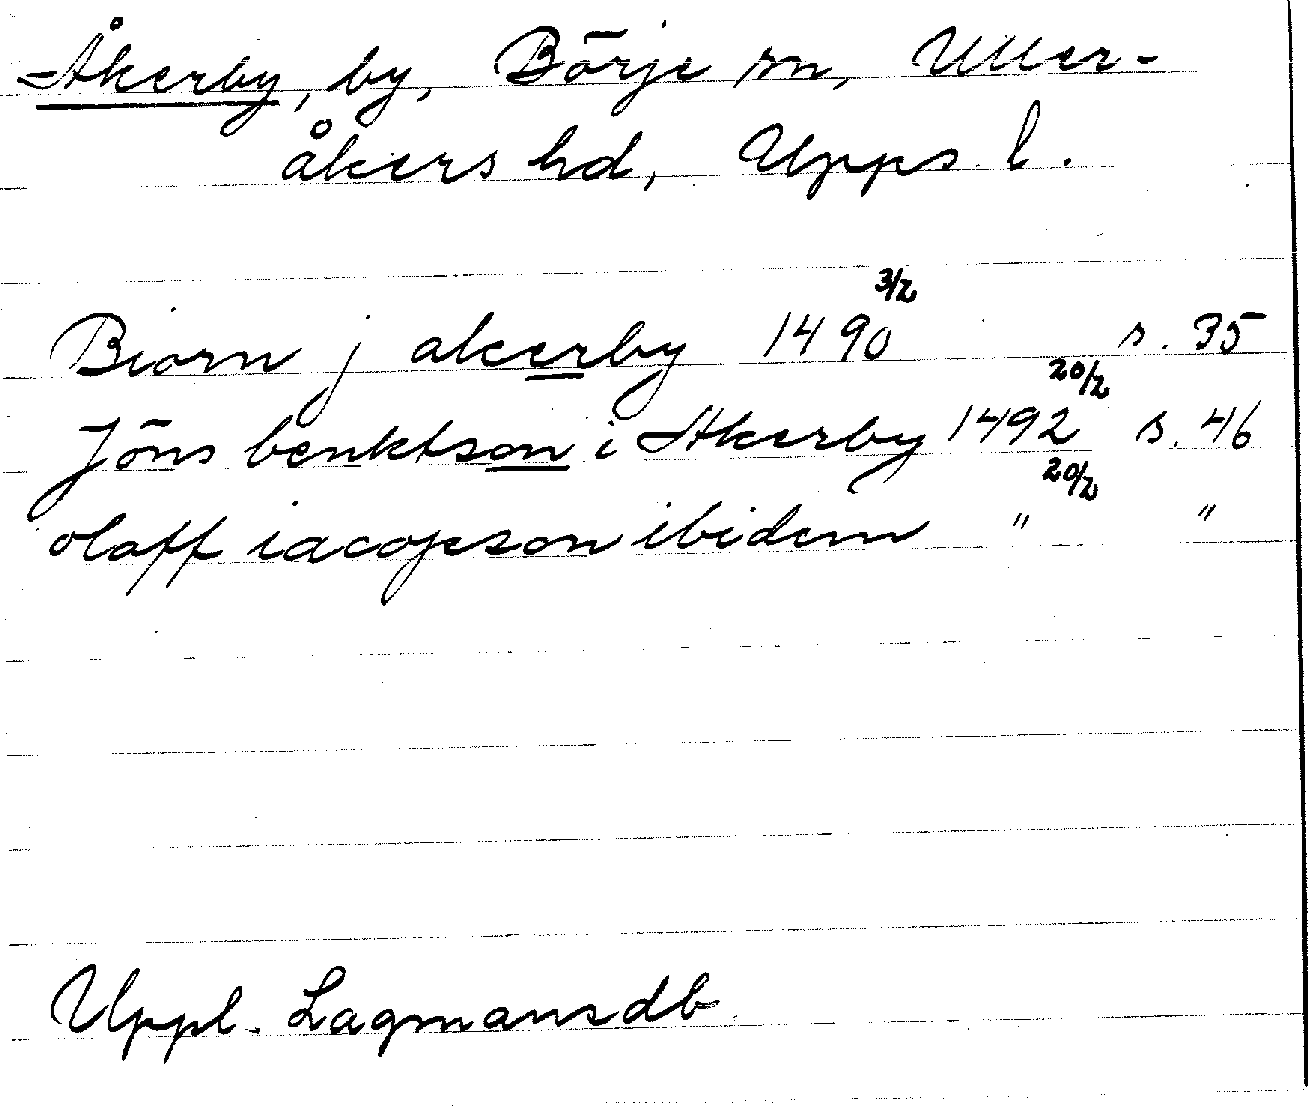 Åkerby, by, Börje sn, Uller-
åkers hd, Upps. l.
Biorn j akerby 1490 3/2 s. 35
Jöns benktson i Akerby 1492 20/2 s. 46
olaff iacopson ibidem " 20/2 "
Uppl. Lagmansdb